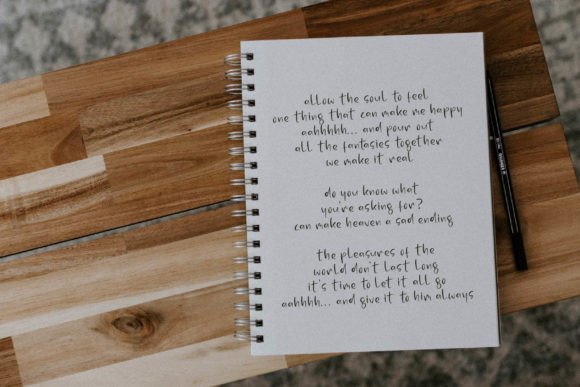 allow the soul to feel
one thing that can make me happy
aahhhhh... and pour out
all the fantasies together
we make it real
do you know what
you're asking for?
can make heaven a sad ending
the pleasures of the
world don't last long
it's time to let it all go
aahhhh... and give it to him always